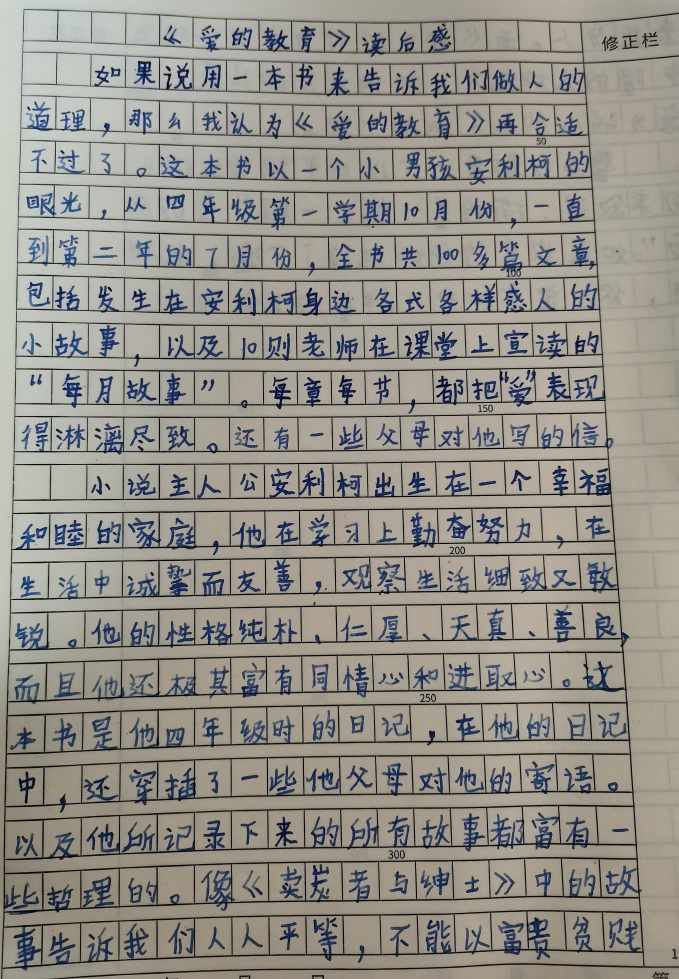 《爱的教育》读后感
修正栏
如果说用一本书来告诉我们做人的
道理，那么我认为《爱的教育》再合适
50
不过了。这本书以一个小男孩安利柯的
眼光，从四年级第一学期10月份，一直
到第二年的7月份，全书共100多篇文章，
100
包括发生在安利柯身边各式各样感人的
小故事，以及10则老师在课堂上宣读的
“每月故事”。每章每节，都把“爱”表现
150
得淋漓尽致。还有一些父母对他写的信。
小说主人公安利柯出生在一个幸福
和睦的家庭，他在学习上勤奋努力，在
200
生活中诚挚而友善，观察生活细致又敏
锐。他的性格纯朴、仁厚、天真、善良，
而且他还极其富有同情心和进取心。这
250
本书是他四年级时的日记，在他的日记
中，还穿插了一些他父母对他的寄语。
以及他所记录下来的所有故事都富有一
300
些哲理的。像《卖炭者与绅士》中的故
事告诉我们人人平等，不能以富贵贫贱
1